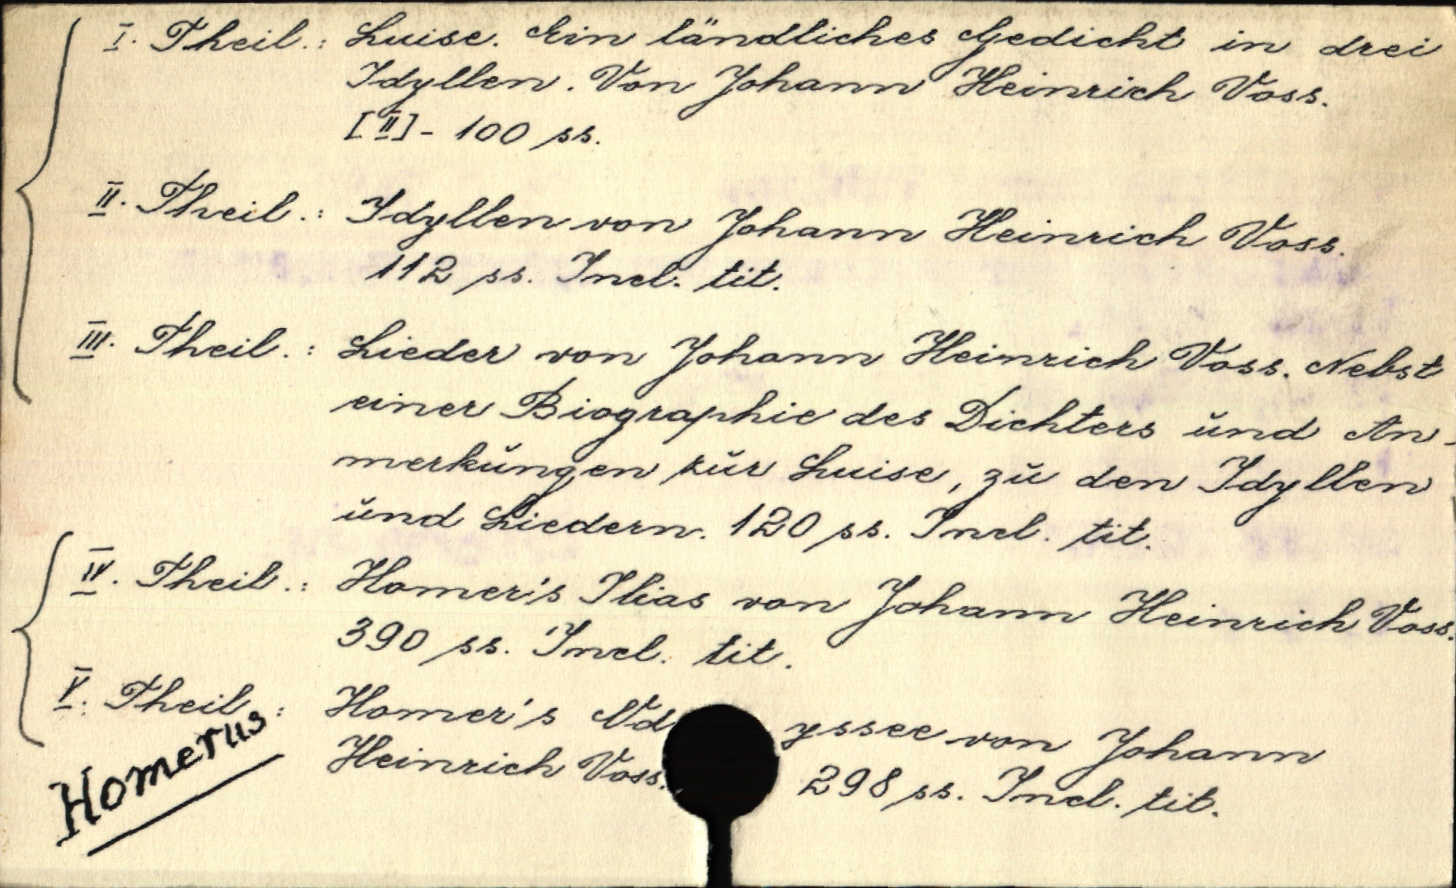 I. Theil.: Luise. Ein ländliches Gedicht in drei
Idyllen. Von Johann Heinrich Voss.
[II] - 100 ss.
II. Theil.: Idyllen von Johann Heinrich Voss.
112 ss. Incl. tit.
III. Theil.: Lieder von Johann Heinrich Voss. Nebst
einer Biographie des Dichters ŭnd An-
merkŭngen zŭr Luise, zŭ den Idyllen
ŭnd Liedern. 120 ss. Incl. tit.
IV. Theil.: Homer's Ilias von Johann Heinrich Voss.
390 ss. Incl. tit.
V. Theil.: Homer's Odyssee von Johann
Heinrich Voss. 298 ss. Incl. tit.
Homerus